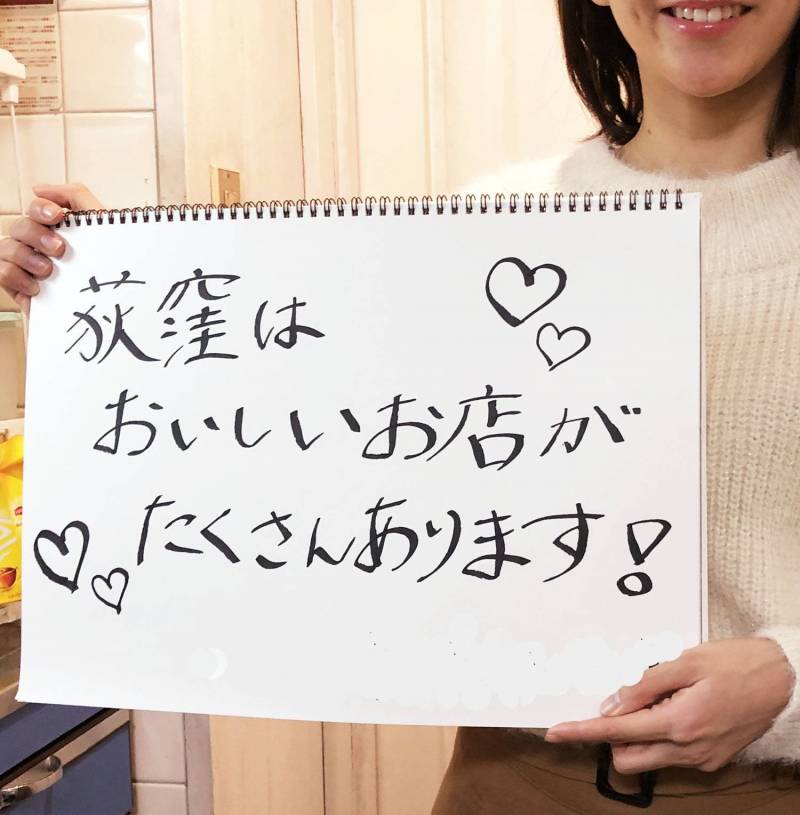 荻窪は
おいしいお店が
たくさんあります!